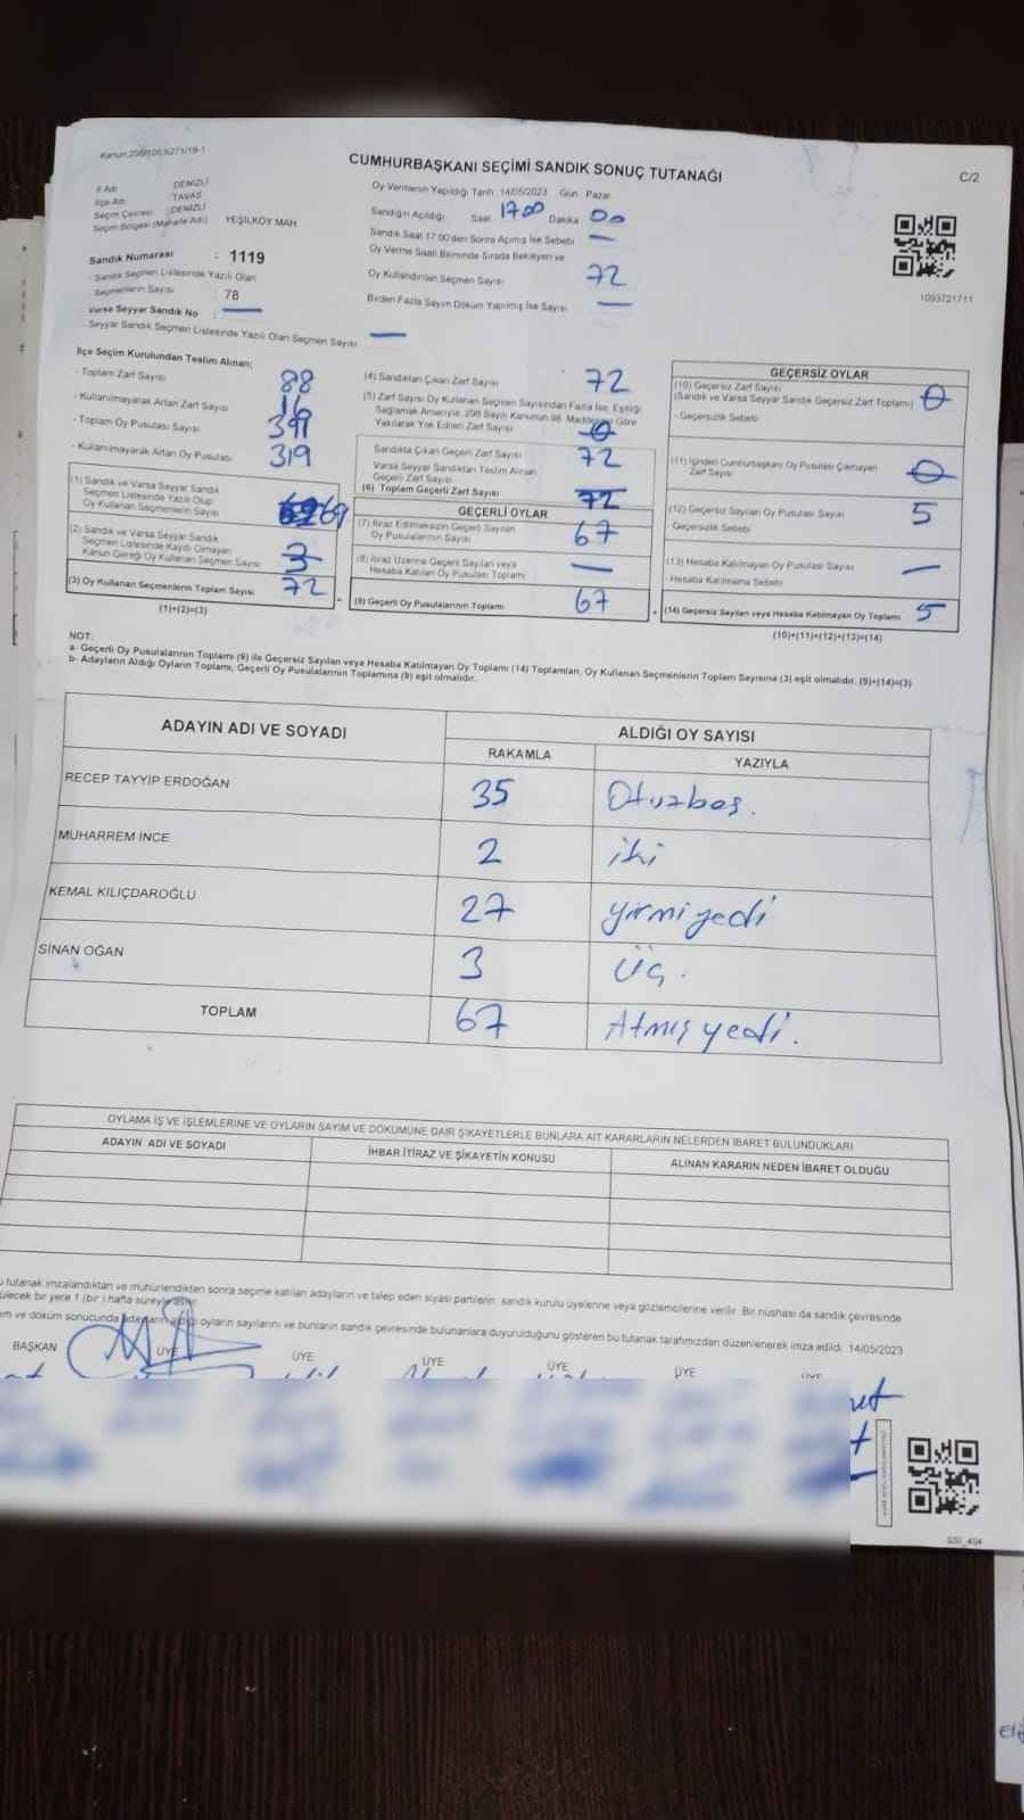 CUMHURBAŞKANI SEÇİMİ SANDIK SONUÇ TUTANAĞI
C/2
İl Adı DENİZLİ
İlçe Adı TAVAS
Seçim Çevresi : DENİZLİ
Seçim Bölgesi (Mahalle Adı) YEŞİLKÖY MAH
Oy Vermenin Yapıldığı Tarih :14/05/2023 Gün Pazar
Sandığın Açıldığı Saat 17:00 Dakika 00
Sandık Saat 17:00'den Sonra Açılmış İse Sebebi —
Oy Verme Saati Bitiminde Sırada Bekleyen ve
Oy Kullandırılan Seçmen Sayısı 72
Birden Fazla Sayım Döküm Yapılmış İse Sayısı —
1093721711
Sandık Numarası : 1119
Sandık Seçmen Listesinde Yazılı Olan
Seçmenlerin Sayısı : 78
Varsa Seyyar Sandık No : —
Seyyar Sandık Seçmen Listesinde Yazılı Olan Seçmen Sayısı —
İlçe Seçim Kurulundan Teslim Alınan;
- Toplam Zarf Sayısı 88
- Kullanılmayarak Artan Zarf Sayısı 16
- Toplam Oy Pusulası Sayısı
- Kullanılmayarak Artan Oy Pusulası 319
(1) Sandık ve Varsa Seyyar Sandık
Seçmen Listesinde Yazılı Olup
Oy Kullanan Seçmenlerin Sayısı 69
(2) Sandık ve Varsa Seyyar Sandık
Seçmen Listesinde Kaydı Olmayan
Kanun Gereği Oy Kullanan Seçmen Sayısı 3
(3) Oy Kullanan Seçmenlerin Toplam Sayısı 72
(1)+(2)=(3)
(4) Sandıktan Çıkan Zarf Sayısı 72
(5) Zarf Sayısı Oy Kullanan Seçmen Sayısından Fazla İse, Eşitliği
Sağlamak Amacıyla, 298 Sayılı Kanunun 98. Maddesine Göre
Yakılarak Yok Edilen Zarf Sayısı 0
Sandıkta Çıkan Geçerli Zarf Sayısı 72
Varsa Seyyar Sandıktan Teslim Alınan
Geçerli Zarf Sayısı
(6) Toplam Geçerli Zarf Sayısı 72
GEÇERLİ OYLAR
(7) İtiraz Edilmeksizin Geçerli Sayılan
Oy Pusulalarının Sayısı 67
(8) İtiraz Üzerine Geçerli Sayılan veya
Hesaba Katılan Oy Pusulası Toplamı —
(9) Geçerli Oy Pusulalarının Toplamı 67
GEÇERSİZ OYLAR
(10) Geçersiz Zarf Sayısı
(Sandık ve Varsa Seyyar Sandık Geçersiz Zarf Toplamı) 0
- Geçersizlik Sebebi
(11) İçinden Cumhurbaşkanı Oy Pusulası Çıkmayan
Zarf Sayısı 0
(12) Geçersiz Sayılan Oy Pusulası Sayısı 5
Geçersizlik Sebebi
(13) Hesaba Katılmayan Oy Pusulası Sayısı —
- Hesaba Katılmama Sebebi
(14) Geçersiz Sayılan veya Hesaba Katılmayan Oy Toplamı 5
(10)+(11)+(12)+(13)=(14)
NOT:
a- Geçerli Oy Pusulalarının Toplamı (9) ile Geçersiz Sayılan veya Hesaba Katılmayan Oy Toplamı (14) Toplamları, Oy Kullanan Seçmenlerin Toplam Sayısına (3) eşit olmalıdır. (9)+(14)=(3)
b- Adayların Aldığı Oyların Toplamı, Geçerli Oy Pusulalarının Toplamına (9) eşit olmalıdır.
ADAYIN ADI VE SOYADI ALDIĞI OY SAYISI
RAKAMLA YAZIYLA
RECEP TAYYİP ERDOĞAN 35 Otuzbeş.
MUHARREM İNCE 2 iki
KEMAL KILIÇDAROĞLU 27 yirmi yedi
SİNAN OĞAN 3 üç.
TOPLAM 67 Atmış yedi.
OYLAMA İŞ VE İŞLEMLERİNE VE OYLARIN SAYIM VE DÖKÜMÜNE DAİR ŞİKAYETLERLE BUNLARA AİT KARARLARIN NELERDEN İBARET BULUNDUKLARI
ADAYIN ADI VE SOYADI İHBAR İTİRAZ VE ŞİKAYETİN KONUSU ALINAN KARARIN NEDEN İBARET OLDUĞU
tutanak imzalandıktan ve mühürlendikten sonra seçime katılan adayların ve talep eden siyasi partilerin, sandık kurulu üyelerine veya gözlemcilerine verilir. Bir nüshası da sandık çevresinde
bir yere 1 (bir) hafta süreyle
ve döküm sonucunda adayların aldığı oyların sayılarını ve bunların sandık çevresinde bulunanlara duyurulduğunu gösteren bu tutanak tarafımızdan düzenlenerek imza edildi. 14/05/2023
BAŞKAN ÜYE ÜYE ÜYE ÜYE ÜYE ÜYE